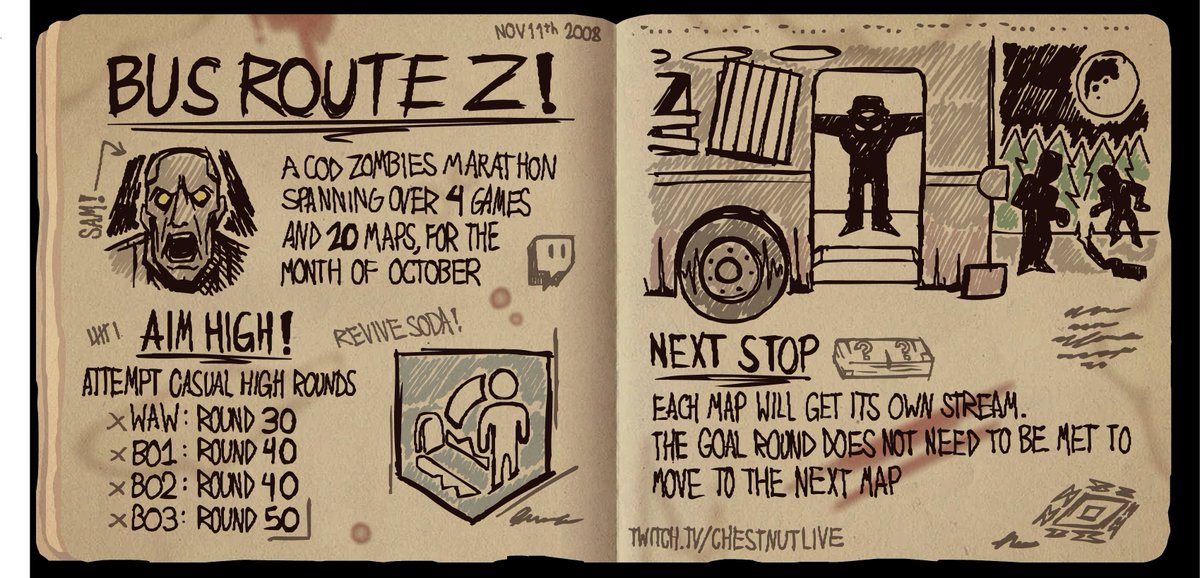 NOV 11th 2008
BUS ROUTE Z!
SAM!
A COD ZOMBIES MARATHON
SPANNING OVER 4 GAMES
AND 20 MAPS, FOR THE
MONTH OF OCTOBER
AIM HIGH!
ATTEMPT CASUAL HIGH ROUNDS
x WAW: ROUND 30
x BO1: ROUND 40
x BO2: ROUND 40
x BO3: ROUND 50
REVIVE SODA!
Z
NEXT STOP
? ?
EACH MAP WILL GET ITS OWN STREAM.
THE GOAL ROUND DOES NOT NEED TO BE MET TO
MOVE TO THE NEXT MAP
TWITCH.TV/CHESTNUTLIVE